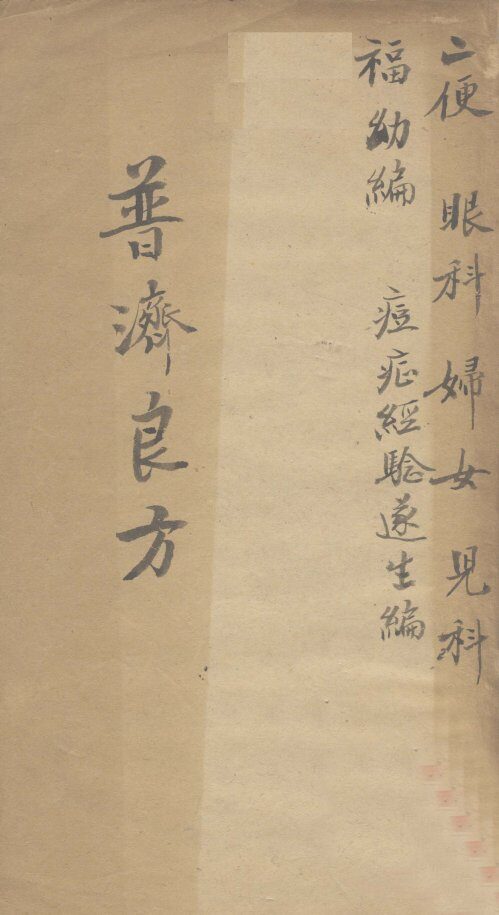 二便 眼科 婦女 兒科
福幼編 痘症經驗遂生編
普濟良方